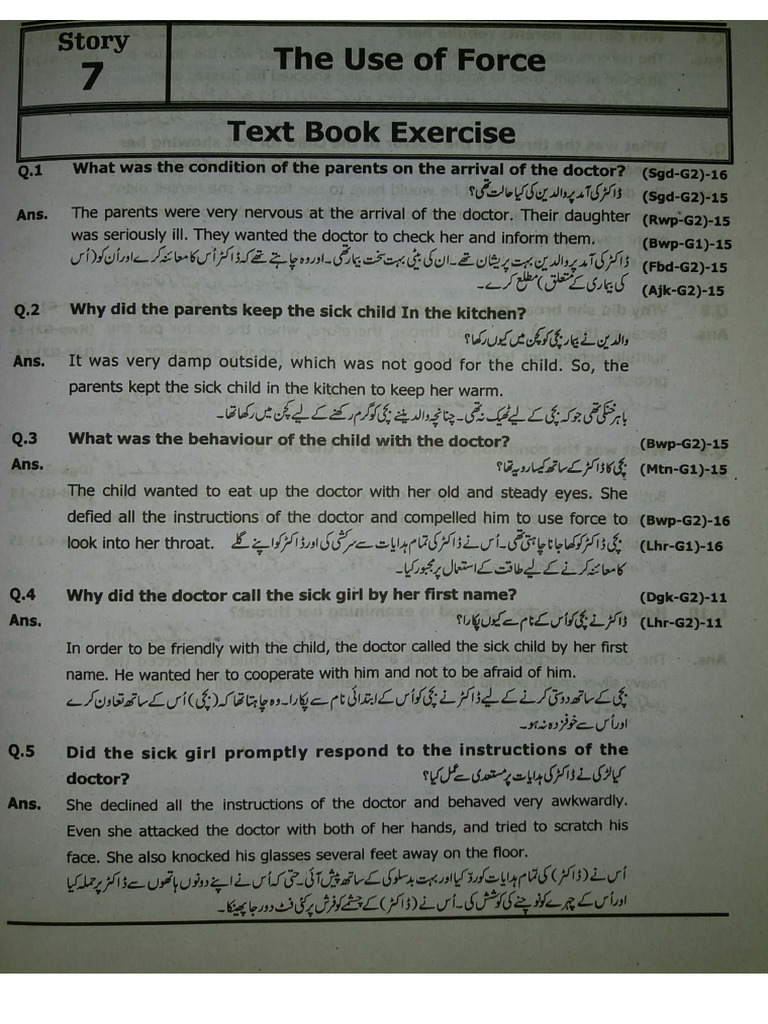 Story
7
The Use of Force
Text Book Exercise
Q.1 What was the condition of the parents on the arrival of the doctor? (Sgd-G2)-16
ڈاکٹر کی آمد پر والدین کی کیا حالت تھی؟ (Sgd-G2)-15
Ans. The parents were very nervous at the arrival of the doctor. Their daughter (Rwp-G2)-15
was seriously ill. They wanted the doctor to check her and inform them. (Bwp-G1)-15
ڈاکٹر کی آمد پر والدین بہت پریشان تھے۔ ان کی بیٹی بہت سخت بیمار تھی۔ اور وہ چاہتے تھے کہ ڈاکٹر اُس کا معائنہ کرے اور اُن کو (اُس (Fbd-G2)-15
کی بیماری کے متعلق) مطلع کرے۔ (Ajk-G2)-15
Q.2 Why did the parents keep the sick child In the kitchen?
والدین نے بیمار بچی کو کچن میں کیوں رکھا؟
Ans. It was very damp outside, which was not good for the child. So, the
parents kept the sick child in the kitchen to keep her warm.
باہر خنکی تھی جو کہ بچی کے لیے ٹھیک نہ تھی۔ چنانچہ والدیننے بچی کو گرم رکھنے کے لیے کچن میں رکھا تھا۔
Q.3 What was the behaviour of the child with the doctor? (Bwp-G2)-15
Ans. بچی کا ڈاکٹر کے ساتھ کیسا رویہ تھا؟ (Mtn-G1)-15
The child wanted to eat up the doctor with her old and steady eyes. She
defied all the instructions of the doctor and compelled him to use force to (Bwp-G2)-16
look into her throat. بچی ڈاکٹر کو کھا جانا چاہتی تھی۔ اُس نے ڈاکٹر کی تمام ہدایات سے سرکشی کی اور ڈاکٹر کو اپنے گلے (Lhr-G1)-16
کا معائنہ کرنے کے لیے طاقت کے استعمال پر مجبور کیا۔
Q.4 Why did the doctor call the sick girl by her first name? (Dgk-G2)-11
Ans. ڈاکٹر نے بچی کو اُس کے نام سے کیوں پکارا؟ (Lhr-G2)-11
In order to be friendly with the child, the doctor called the sick child by her first
name. He wanted her to cooperate with him and not to be afraid of him.
بچی کے ساتھ دوستی کرنے کے لیے ڈاکٹر نے بچی کو اُس کے ابتدائی نام سے پکارا۔ وہ چاہتا تھا کہ (بچی) اُس کے ساتھ تعاون کرے
اور اُس سے خوفزدہ نہ ہو۔
Q.5 Did the sick girl promptly respond to the instructions of the
doctor? کیا لڑکی نے ڈاکٹر کی ہدایات پر مستعدی سے عمل کیا؟
Ans. She declined all the instructions of the doctor and behaved very awkwardly.
Even she attacked the doctor with both of her hands, and tried to scratch his
face. She also knocked his glasses several feet away on the floor.
اُس نے (ڈاکٹر) کی تمام ہدایات کو ردّ کیا اور بہت بدسلوکی کے ساتھ پیش آئی۔ حتیٰ کہ اُس نے اپنے دونوں ہاتھوں سے ڈاکٹر پر حملہ کیا
اور اُس کے چہرے کو نوچنے کی کوشش کی۔ اُس نے (ڈاکٹر) کے چشمے کو فرش پر کئی فٹ دور جا پھینکا۔